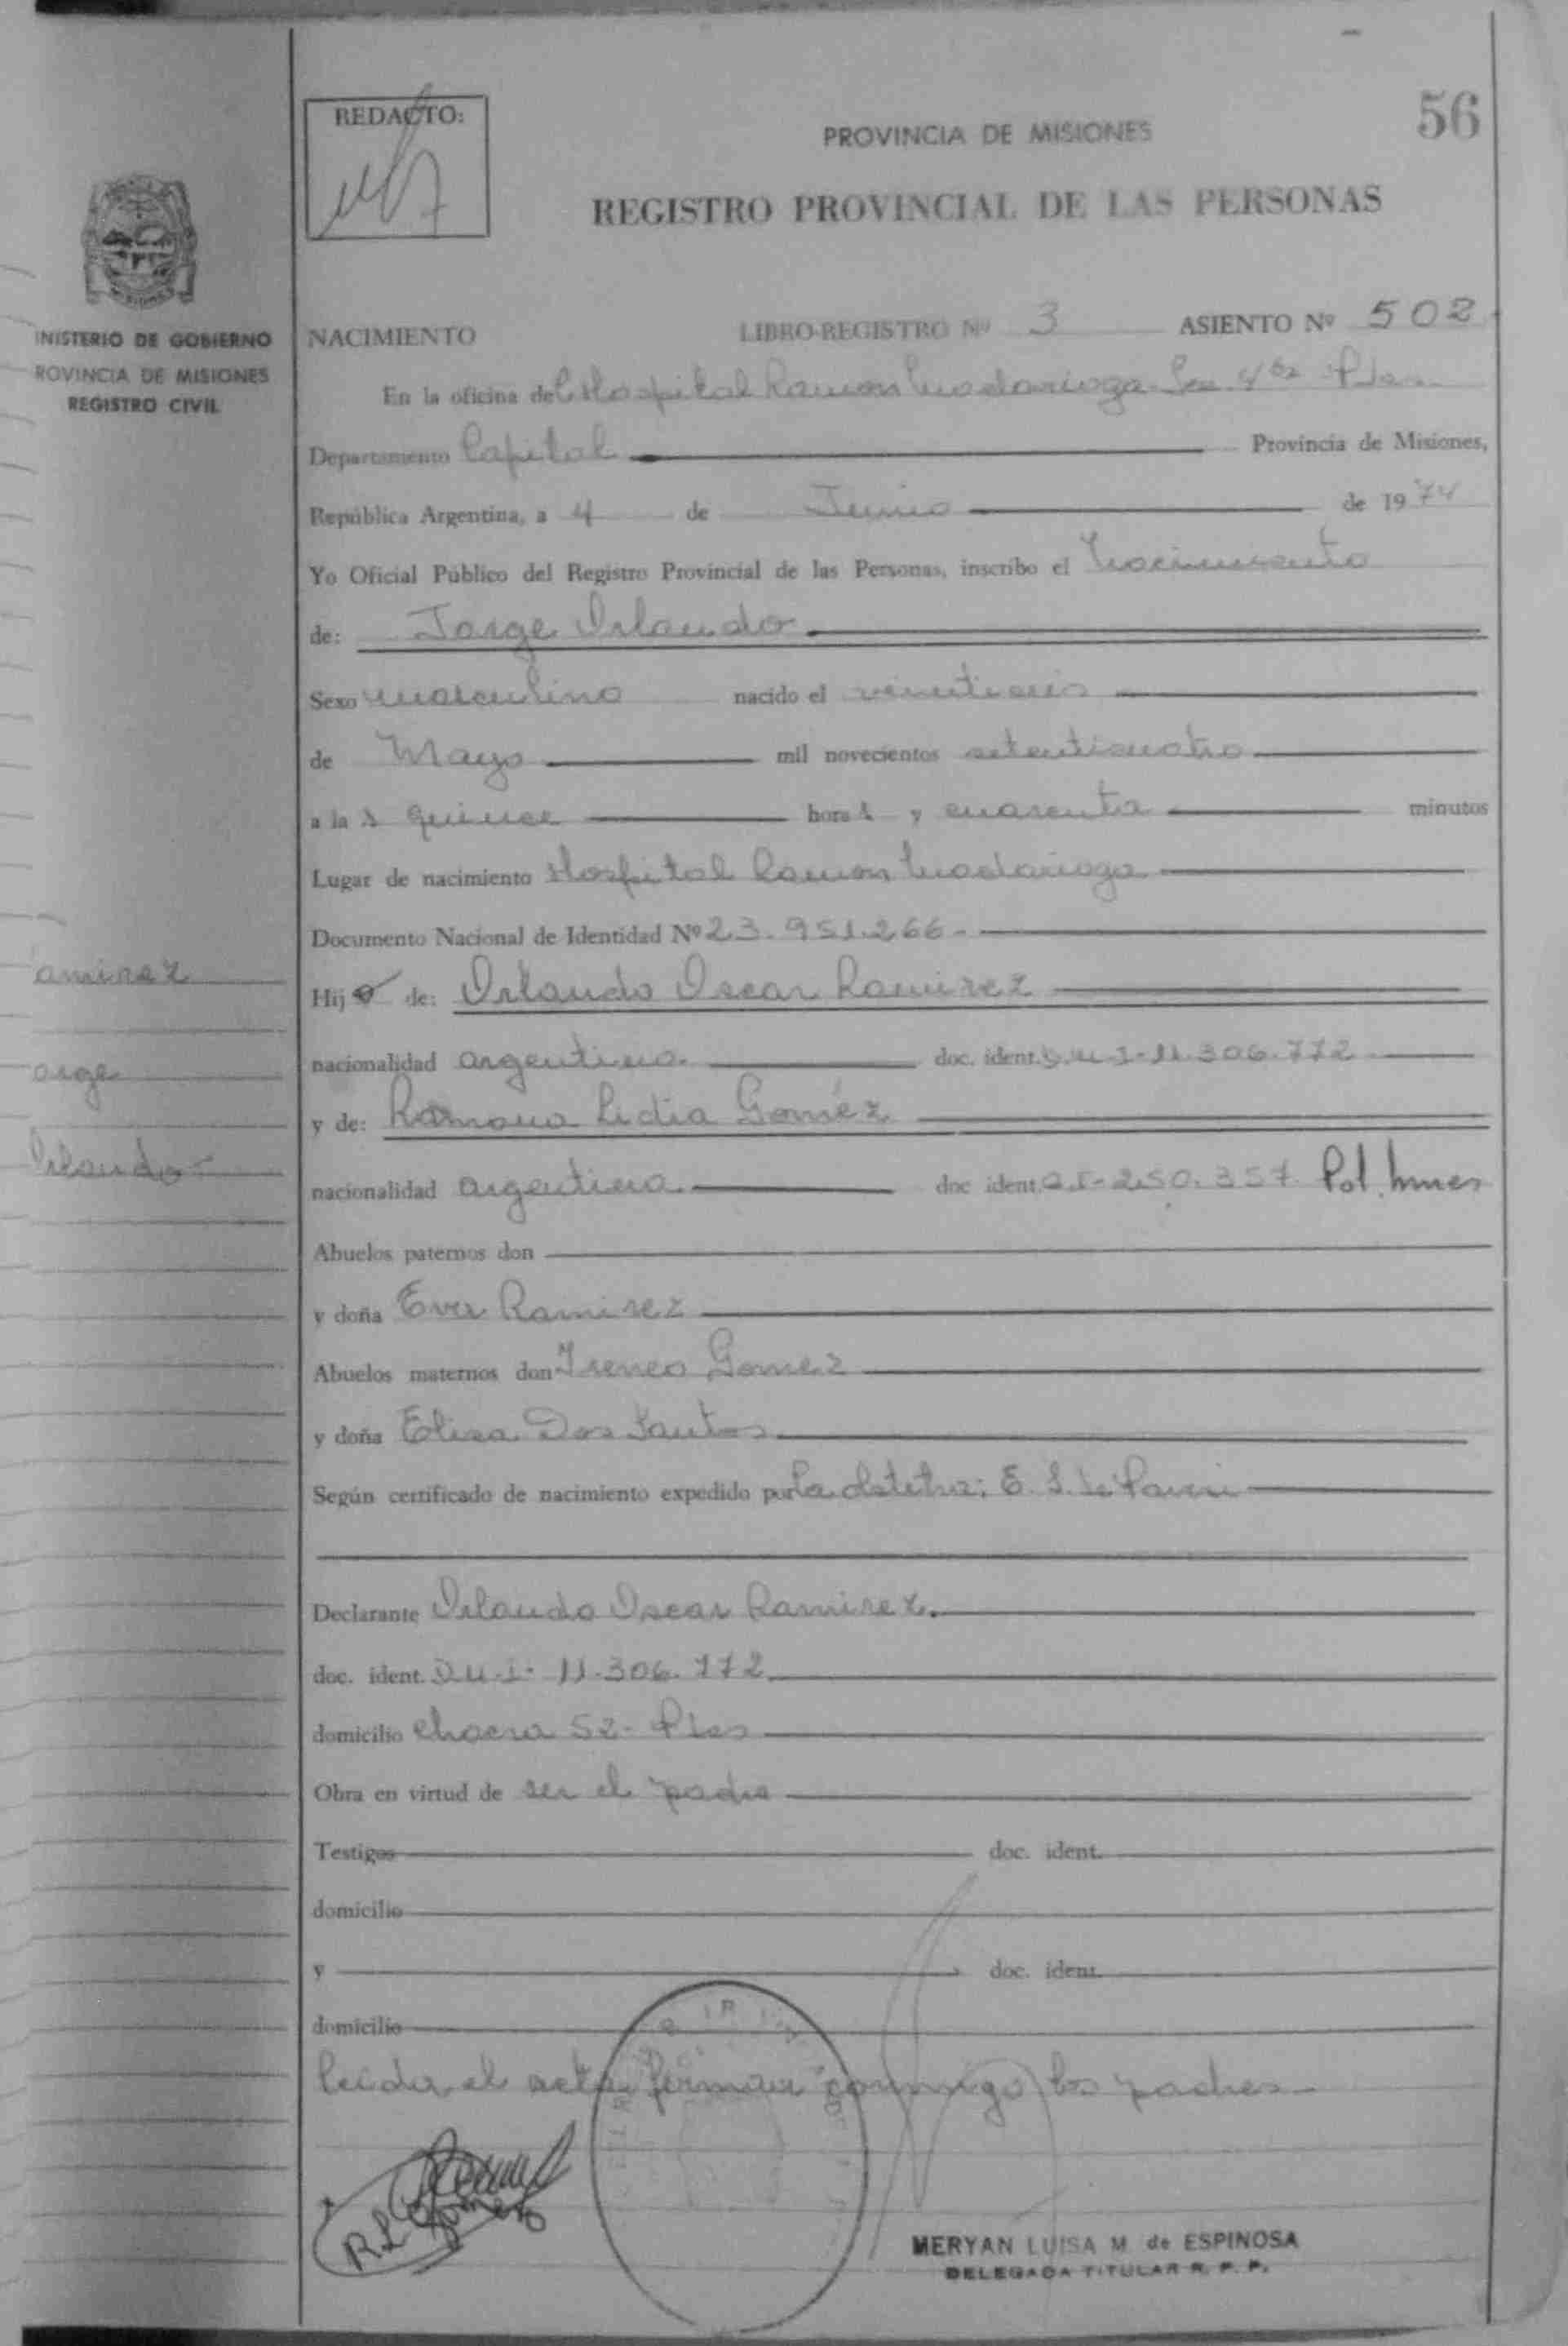 56
REDACTO:
PROVINCIA DE MISIONES
REGISTRO PROVINCIAL DE LAS PERSONAS
INISTERIO DE GOBIERNO
ROVINCIA DE MISIONES
REGISTRO CIVIL
NACIMIENTO LIBRO-REGISTRO Nº 3 ASIENTO Nº 502
En la oficina del Hospital Ramon Madariaga Sec 4ta Pdas
Departamento Capital Provincia de Misiones,
República Argentina, a 4 de Junio de 1974
Yo Oficial Público del Registro Provincial de las Personas, inscribo el Nacimiento
de: Jorge Orlando
Sexo masculino nacido el veintiseis
de Mayo mil novecientos setenticuatro
a las quince horas y cuarenta minutos
Lugar de nacimiento Hospital Ramon Madariaga
Documento Nacional de Identidad Nº 23.951.266.-
amirez
Hijo de: Orlando Oscar Ramirez
nacionalidad argentina. doc. ident. D.U.I-11.306.772
orge
y de: Ramona Lidia Goméz
Orlando-
nacionalidad argentina. doc ident. 250.357 Pol. Mnes
Abuelos paternos don
y doña Eva Ramirez
Abuelos maternos don Ireneo Gomez
y doña Elisa Dos Santos
Según certificado de nacimiento expedido por La obstetra: E. S. de
Declarante Orlando Oscar Ramirez.
doc. ident. D.U.I- 11.306.772
domicilio chacra 52- Pdas
Obra en virtud de ser el padre
Testigos doc. ident.
domicilio
y doc. ident.
domicilio
Leida el acta firman conmigo los padres-
R.L Gomez
MERYAN LUISA M de ESPINOSA
DELEGADA TITULAR R. P. P.